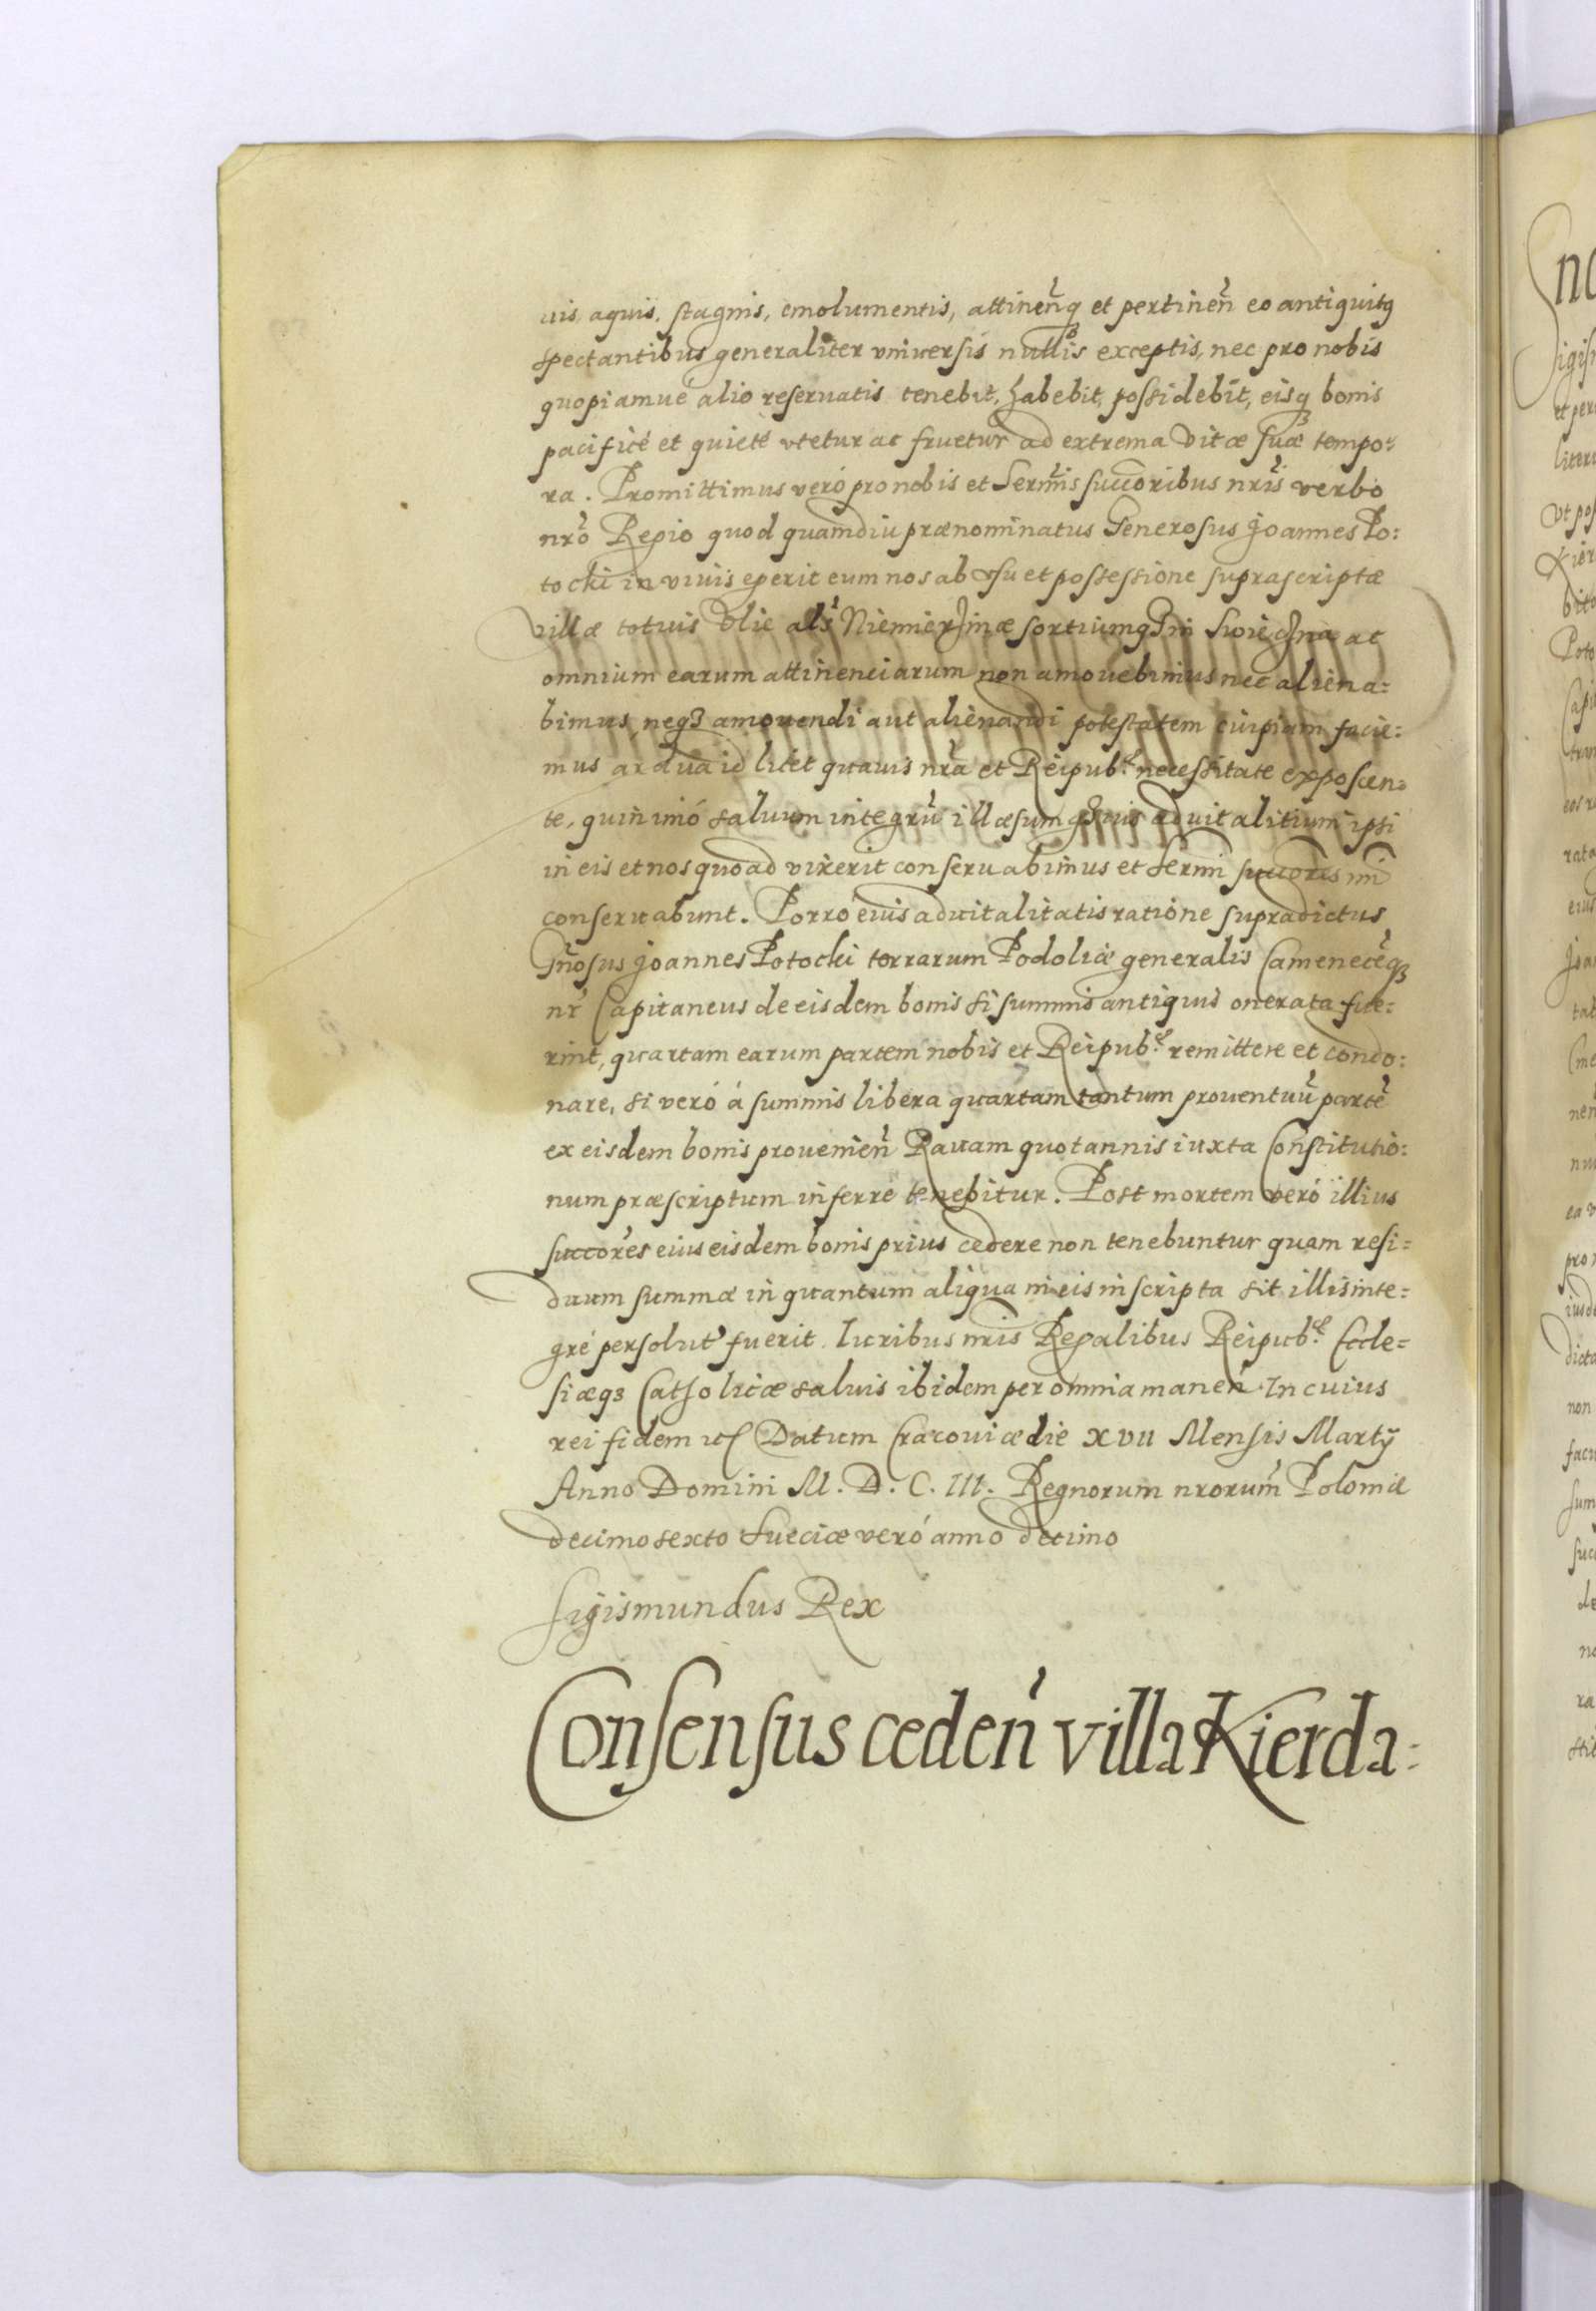 uis, aquis, stagnis, emolumentis, attinen̄q et pertinen̄ eo antiquitq
spectantibus generaliter vniuersis nullis exceptis, nec pro nobis
quopiamue alio reseruatis tenebit, habebit, possidebit, eisq bonis
pacificé et quieté vtetur ac fruetur ad extrema vitæ suæ tempo:
ra. Promittimus veró pro nobis et Sermis succoribus nris verbo
nro Regio quod quamdiu prænominatus Generosus Joannes Po:
tocki in viuis egerit eum nos ab vsu et possessione suprascriptæ
villæ totuis Olic als Niemierzinæ sortiumq in ac
omnium earum attinenciarum non amouebimus nec aliena:
bimus, neqȝ amouendi aut alienandi potestatem cuipiam facie:
mus ardua id licet quauis nra et Reipub: necessitate exposcen:
te, quinimó saluum integrū illæsum aduitalitium ipsi
in eis et nos quoad vixerit conseruabimus et Sermi succores nri
conseruabunt. Porro eius aduitalitatis ratione supradictus
Gnosus Joannes Potocki terrarum Podoliæ generalis Cameneceqȝ
nr Capitaneus de eisdem bonis si summis antiquis onerata fue:
rint, quartam earum partem nobis et Reipub: remittere et condo:
nare, si veró á summis libera quartam tantum prouentuū partē
ex eisdem bonis prouenien̄ Rauam quotannis iuxta Constitutio:
num præscriptum inferre tenebitur. Post mortem veró illius
succores eius eisdem bonis prius cedere non tenebuntur quam resi:
duum summæ in quantum aliqua in eis inscripta sit illis inte:
gré persolut fuerit. Iuribus nris Regalibus Reipub: Eccle:
siæqȝ Catholicæ saluis ibidem per omnia manen̄. In cuius
rei fidem Datum Cracouiæ die XVII Mensis Martij
Anno Domini M. D. C. III. Regnorum nrorum Poloniæ
decimo sexto Sueciæ veró anno decimo
Sigismundus Rex
Consensus ceden̄ villa Kierda: